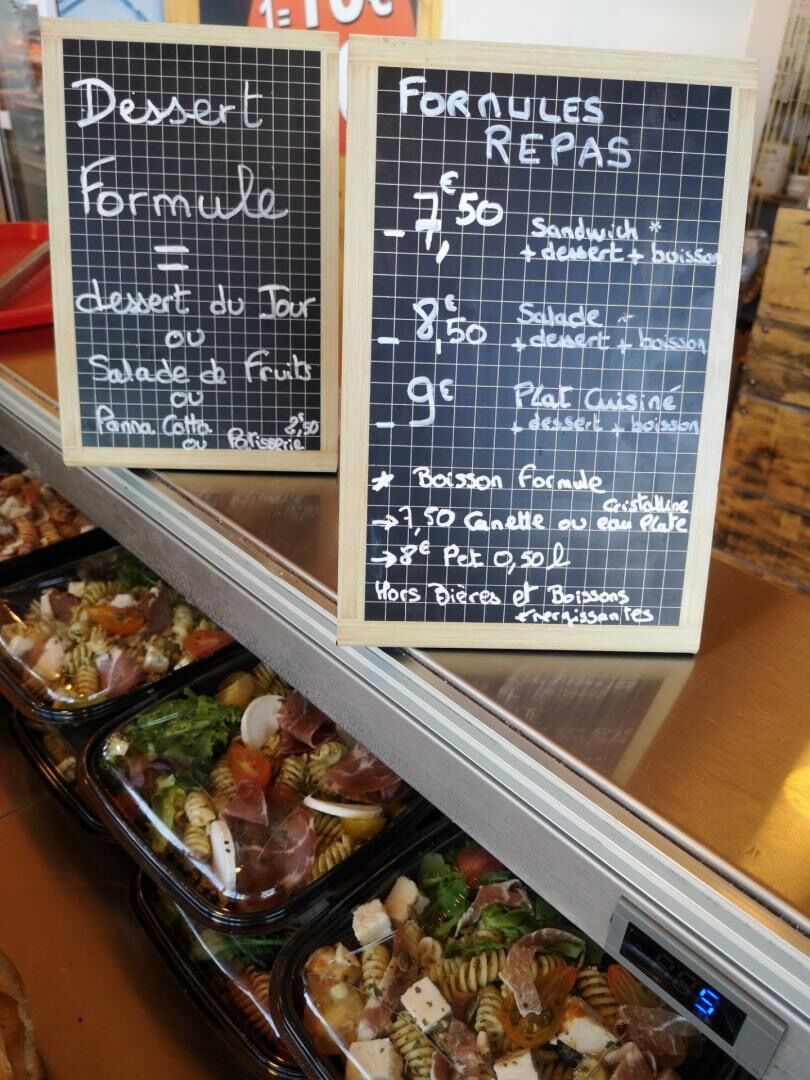 1=10€
Dessert
Formule
=
dessert du Jour
ou
Salade de Fruits
ou
Panna Cotta
ou Patisserie 2,50
FORMULES
REPAS
- 7,€50 Sandwich *
+ dessert + boisson
- 8,€50 Salade *
+ dessert + boisson
- 9€ Plat Cuisiné
+ dessert + boisson
* Boisson Formule
→ 7,50 Canette ou eau Plate
Cristalline
→ 8€ Pet 0,50 l
Hors Bières et Boissons
Energissantes
5